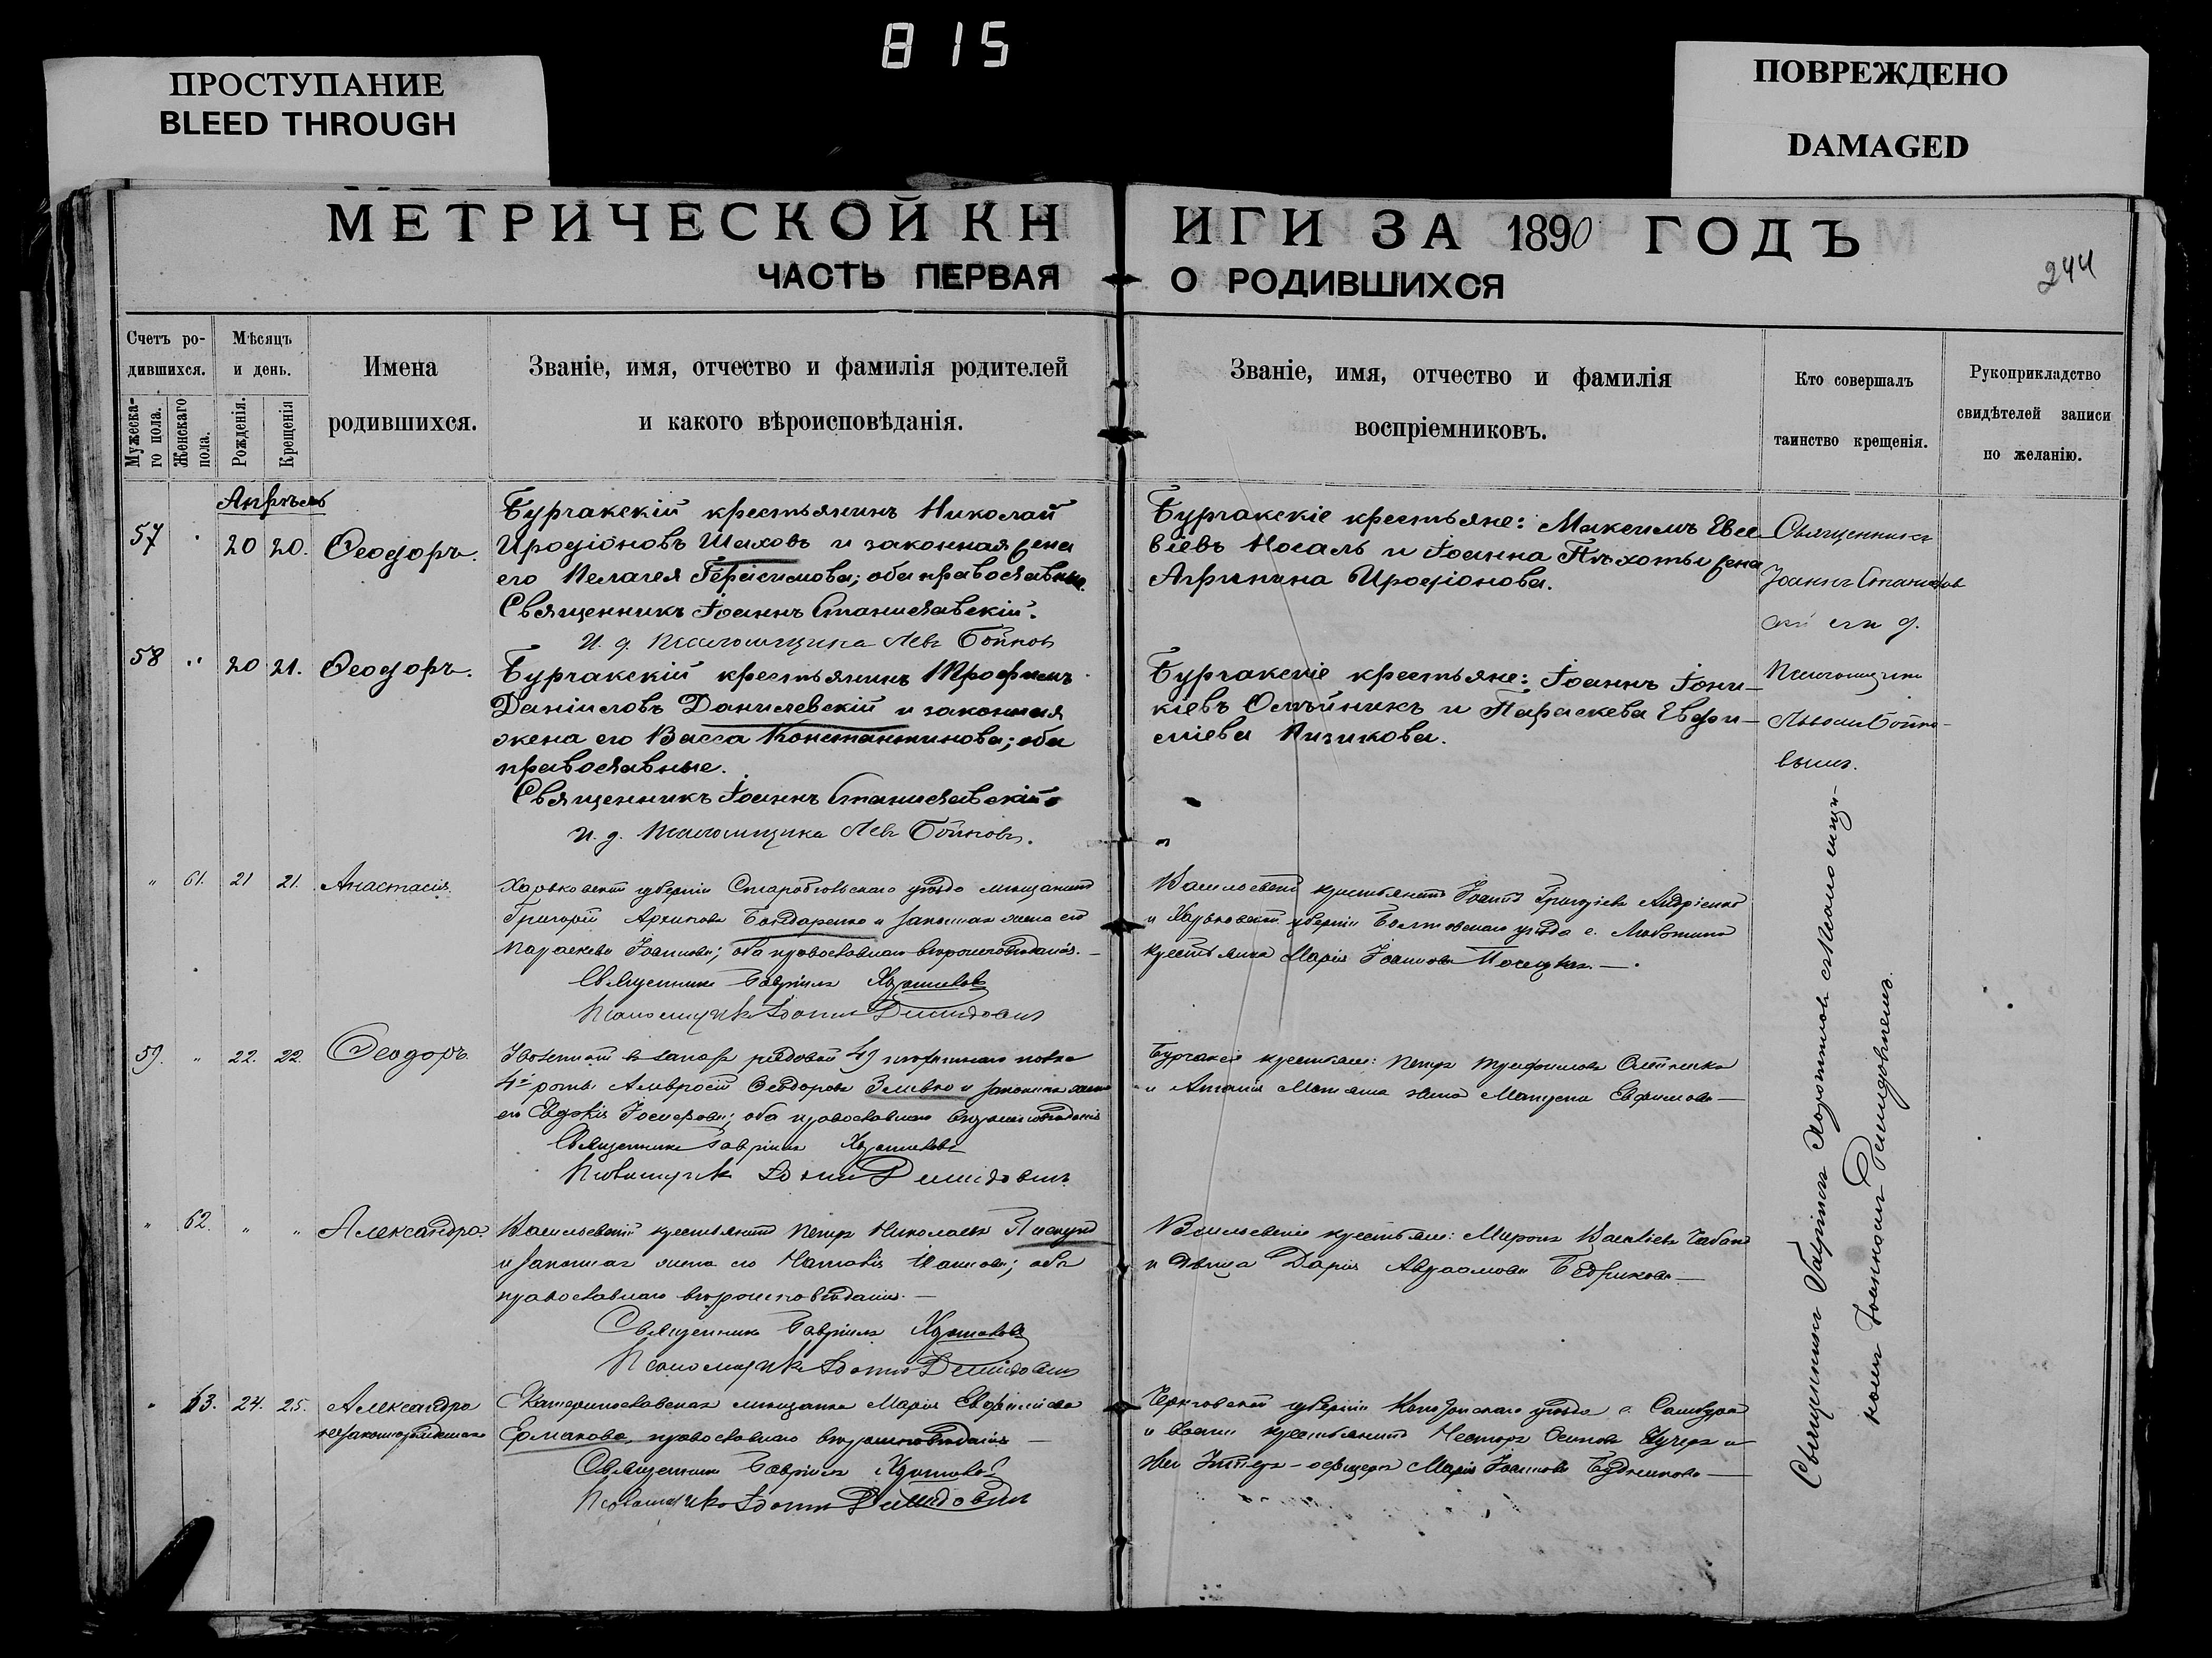 815
ПРОСТУПАНИЕ
BLEED THROUGH
ПОВРЕЖДЕНО
DAMAGED
МЕТРИЧЕСКОЙ КН
ИГИ ЗА 1890 ГОДЪ
ЧАСТЬ ПЕРВАЯ
О РОДИВШИХСЯ
244
Счетъ ро-
дившихся.
Мужеска-
го пола.
Женскаго
пола.
Мѣсяцъ
и день.
Рожденія.
Крещенія
Имена
родившихся.
Званіе, имя, отчество и фамилія родителей
и какого вѣроисповѣданія.
Званіе, имя, отчество и фамилія
воспріемниковъ.
Кто совершалъ
таинство крещенія.
Рукоприкладство
свидѣтелей записи
по желанію.
Апрѣль
57 20 20. Ѳеодоръ.
Бурчакскій крестьянинъ Николай
Иродіоновъ Шаховъ и законная жена
его Пелагея Герасимова; оба православные.
Священникъ Іоаннъ Станиславскій.
И. д. Псаломщика Левъ Бойковъ
Бурчакскіе крестьяне: Максимъ Евсе
віевъ Носаль и Іоанна Пѣхоты жена
Агрипина Иродіонова.
Священникъ
Іоаннъ Станислав
скій съ и. д.
Псаломщика
Львомъ Бойко-
вымъ.
58 " 20 21. Ѳеодоръ.
Бурчакскій крестьянинъ Трофимъ
Даніиловъ Данилевскій и законная
жена его Васса Константинова; оба
православные.
Священникъ Іоаннъ Станиславскій
И. д. Псаломщика Левъ Бойковъ.
Бурчакскіе крестьяне: Іоаннъ Іони-
кіевъ Олѣйникъ и Параскева Евфи-
міева Пизикова.
" 61. 21 21. Анастасія.
Харьковской губерніи Старобѣльскаго уѣзда мѣщанинъ
Григорій Архиповъ Бондаренко и законная жена его
Параскева Іоаннова; оба православнаго вѣроисповѣданія.
Священникъ Гавріилъ
Псаломщикъ Іоаннъ Демидовичъ
Васильевскій крестьянинъ Іоаннъ Григорьевъ Андріенко
и Харьковской губерніи уѣзда с.
крестьянка Марія Іоаннова
59. " 22. 22. Ѳеодоръ.
въ запасъ рядовой 49 полка
4й роты Амвросій Ѳеодоровъ и законная жена
его Евдокія Іосифова; оба православнаго вѣроисповѣданія
Священникъ Гавріилъ
Псаломщикъ Іоаннъ Демидовичъ
Бурчакскіе крестьяне: Петръ Трофимовъ Олѣйникъ
и жена Евфимова
" 62. " " Александра.
Васильевскій крестьянинъ Петръ Николаевъ
и законная жена его Наталія Іоаннова; оба
православнаго вѣроисповѣданія.
Священникъ Гавріилъ
Псаломщикъ Іоаннъ Демидовичъ
Васильевскіе крестьяне: Миронъ Васильевъ Чабанъ
и дѣвица Дарія Авраамова Бедрикова
" 63. 24. 25. Александра
незаконнорожденная
Екатеринославская мѣщанка Марія Евфиміева
Ермакова, православнаго вѣроисповѣданія
Священникъ Гавріилъ
Псаломщикъ Іоаннъ Демидовичъ
Черниговской губерніи Конотопскаго уѣзда с.
крестьянинъ Несторъ Осиповъ Кучеръ и
офицера Марія Іоаннова
Священникъ Гавріилъ съ псаломщи-
комъ Іоанномъ Демидовичемъ.